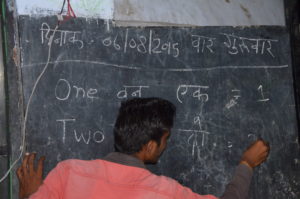 दिनांक - 06/03/205 वार गुरूवार
One वन एक = 1
Two